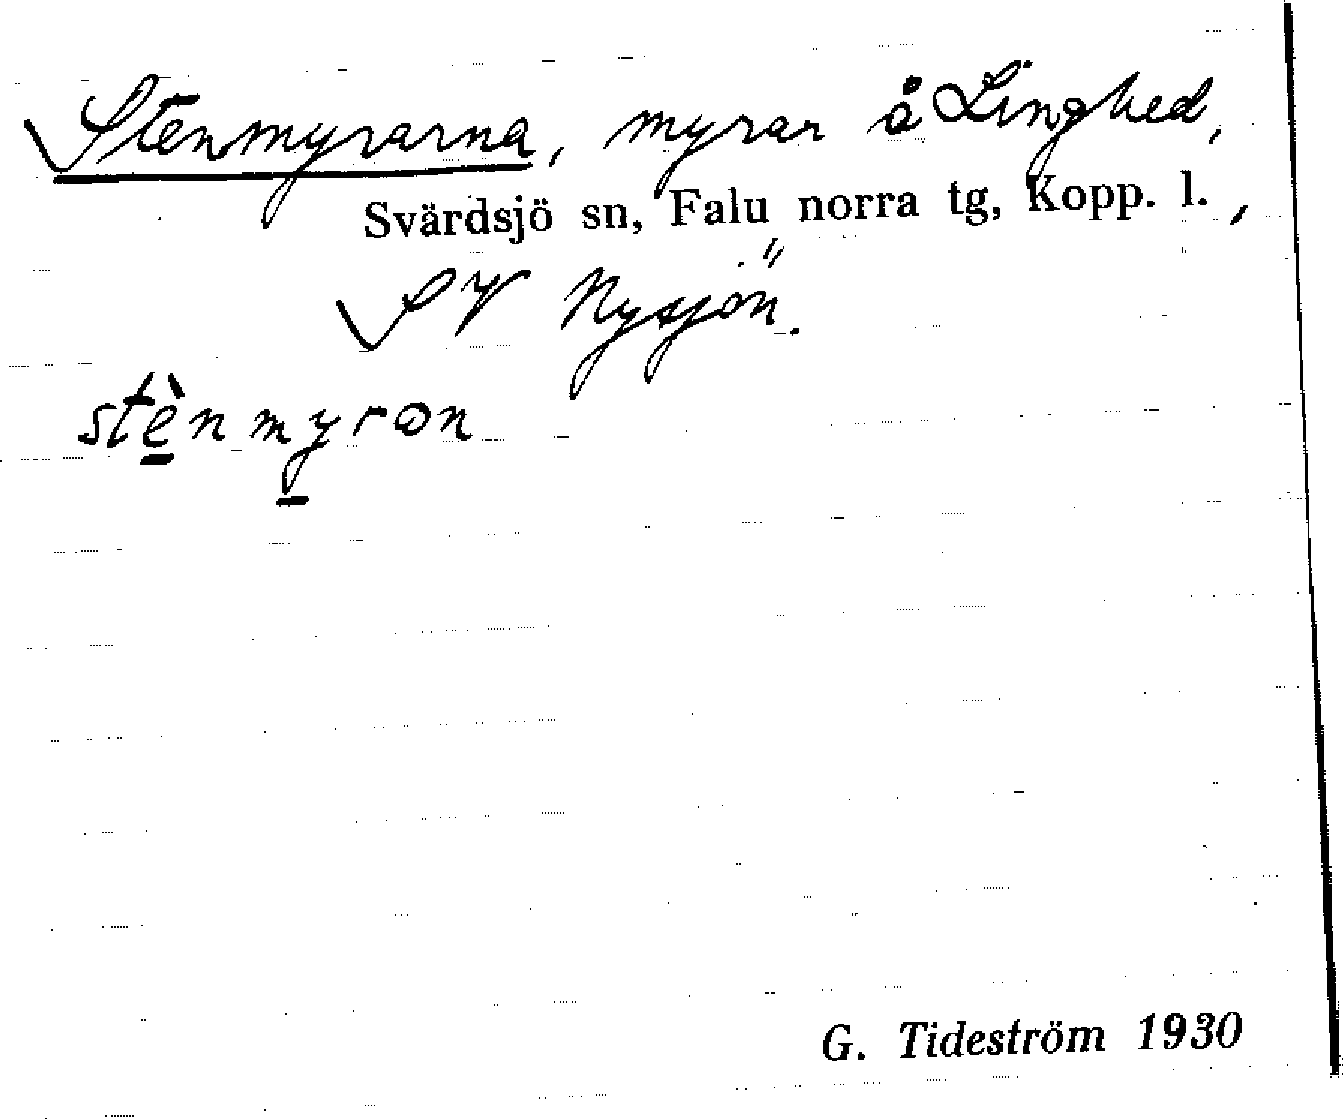 Stenmyrarna, myrar å Linghed,
Svärdsjö sn, Falu norra tg, Kopp. l.,
SV Nysjön.
stè̱nmy̱ron
G. Tideström 1930